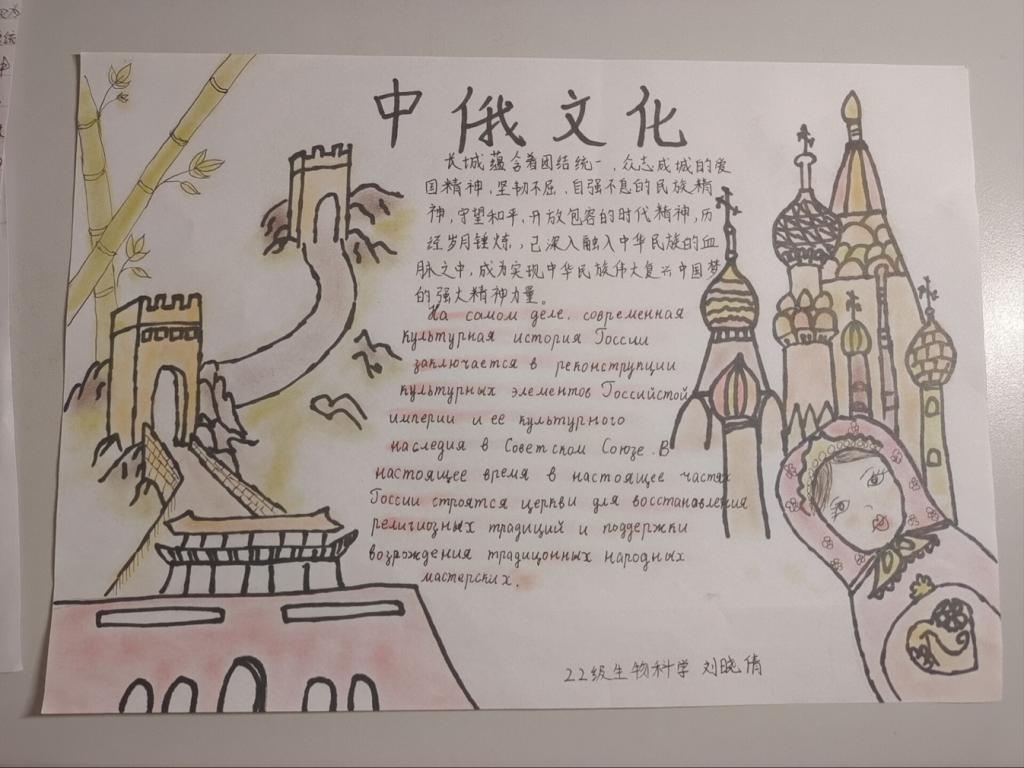 中俄文化
长城蕴含着团结统一，众志成城的爱
国精神，坚韧不屈，自强不息的民族精
神，守望和平，开放包容的时代精神，历
经岁月锤炼，已深入融入中华民族的血
脉之中，成为实现中华民族伟大复兴中国梦
的强大精神力量。
На самом деле, современная
культурная история Госсии
заключается в реконструкции
культурных элементов Госсийстой
империи и ее культурного
наследия в Советском Союзе. В
настоящее время в настоящее частях
Госсии строятся церкви для восстановления
религиозных традиций и поддержки
возрождения традиционных народных
мастерских.
22级生物科学 刘晓倩